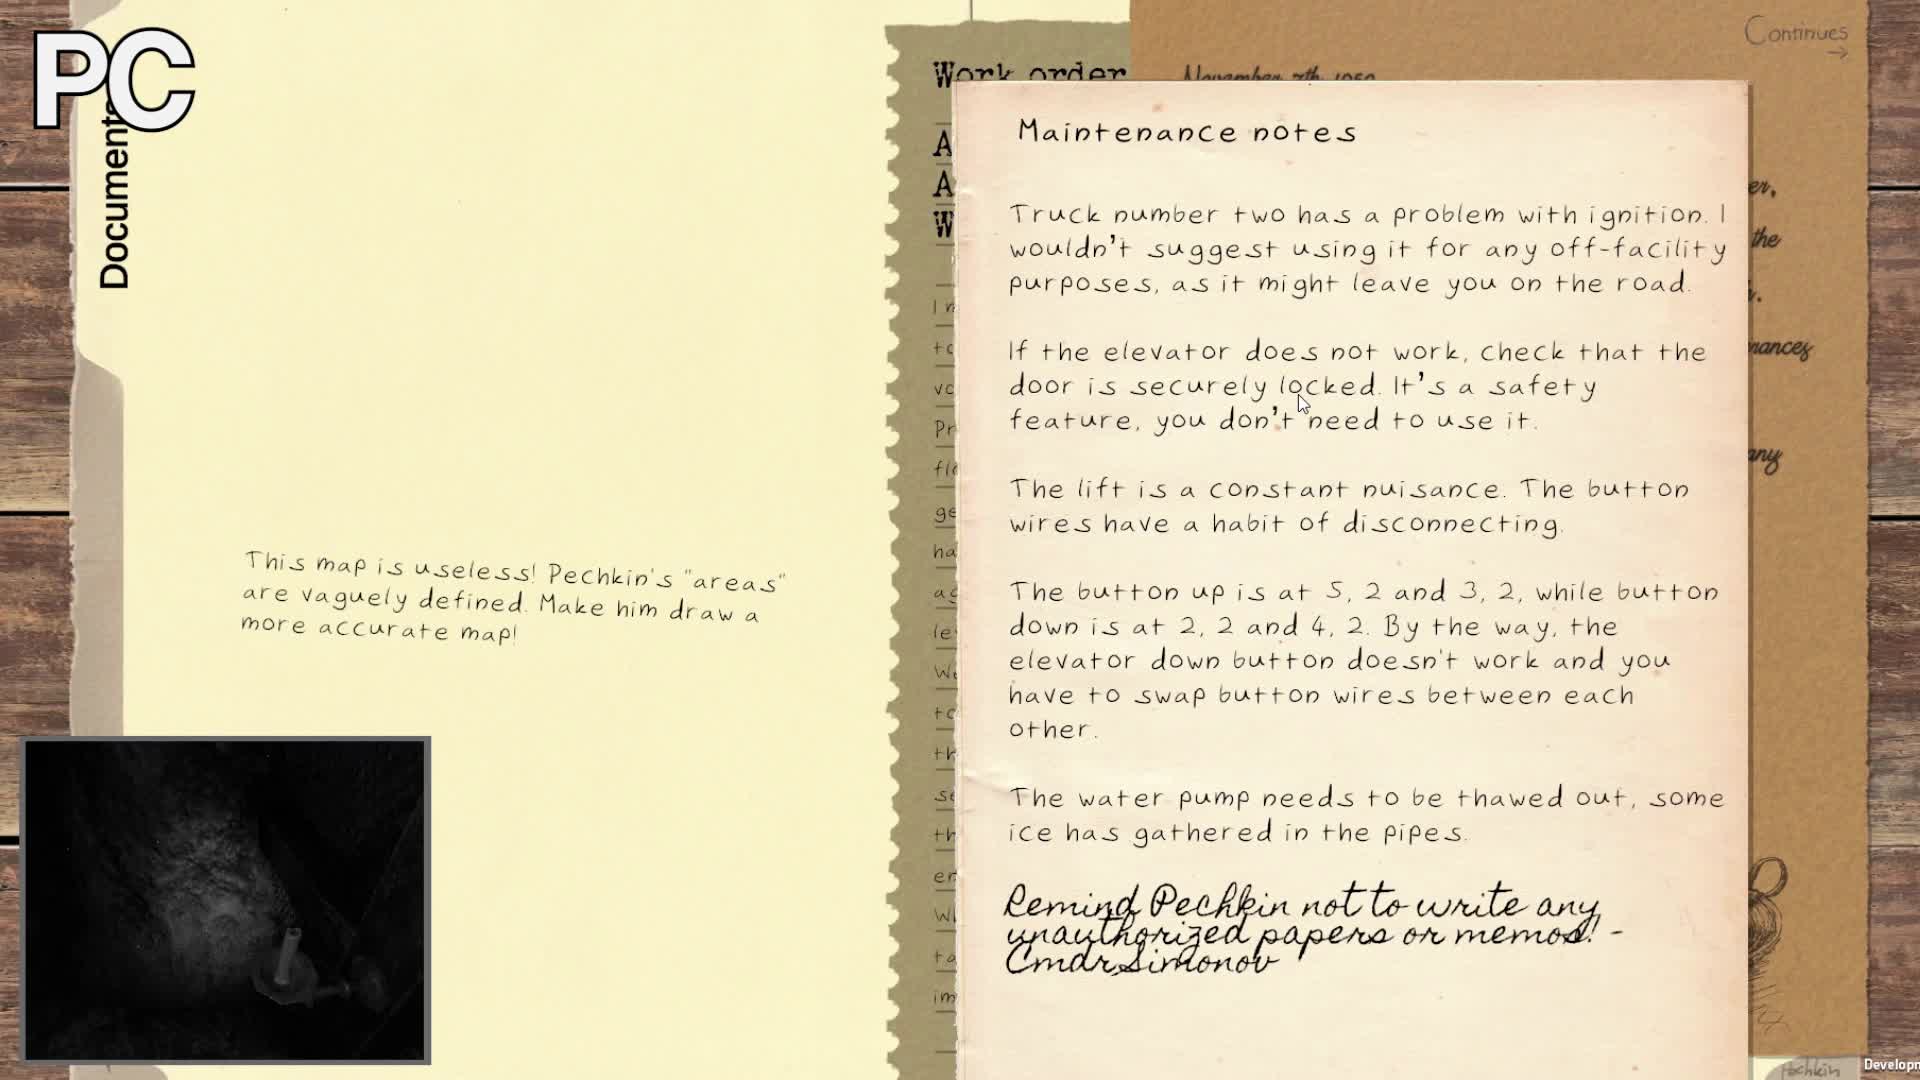 PC
Documents
This map is useless! Pechkin's "areas"
are vaguely defined. Make him draw a
more accurate map!
Work order
Continues
November 7th, 1959
Maintenance notes
Truck number two has a problem with ignition. I
wouldn't suggest using it for any off-facility
purposes, as it might leave you on the road.
If the elevator does not work, check that the
door is securely locked. It's a safety
feature, you don't need to use it.
The lift is a constant nuisance. The button
wires have a habit of disconnecting.
The button up is at 5, 2 and 3, 2, while button
down is at 2, 2 and 4, 2. By the way, the
elevator down button doesn't work and you
have to swap button wires between each
other.
The water pump needs to be thawed out, some
ice has gathered in the pipes.
Remind Pechkin not to write any
unauthorized papers or memos! -
Cmdr.Simonov
the
any
Pechkin